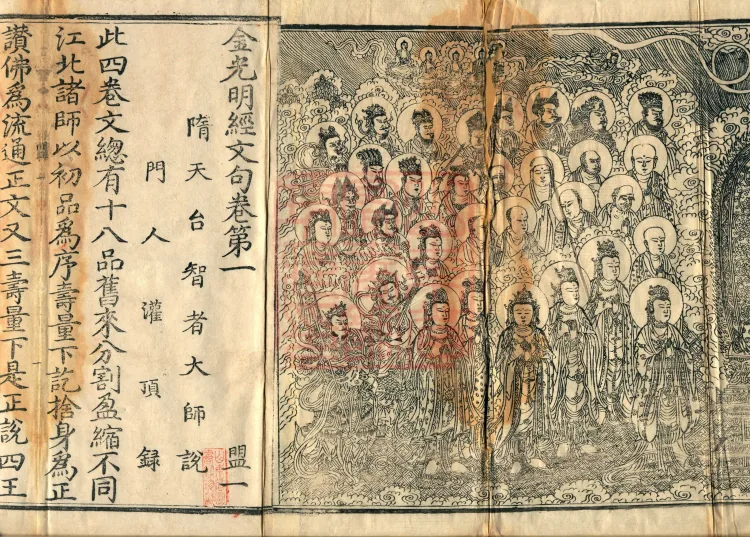 金光明經文句卷第一　盟一
隋天台智者大師說
門人灌頂錄
此四卷文總有十八品舊來分割盈縮不同
江北諸師以初品爲序壽量下訖捨身爲正
讃佛爲流通正文又三壽量下是正說四王